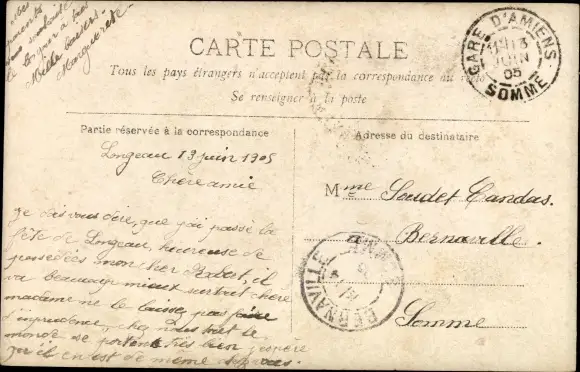 Mes
parents
vous souhaite
le bonjour a tous
Mille baisers
Marguerite
CARTE POSTALE
Tous les pays étrangers n'acceptent pas la correspondance au recto
Se renseigner à la poste
GARE D'AMIENS
13
JUIN
05
SOMME
Partie réservée à la correspondance
Adresse du destinataire
Longeau 13 juin 1905
Chère amie
Je vais vous dire, que j'ai passé la
fête de Longeau, heureuse de
possedées mon
il
va beaucoup mieux surtout chère
madame ne le laissez pas faire
d'inprudence, chez nous tout le
monde se portent très bien j'espère
qu'il en est de même
Mme Soudet Candas.
Bernaville.
Somme
BERNAVILLE